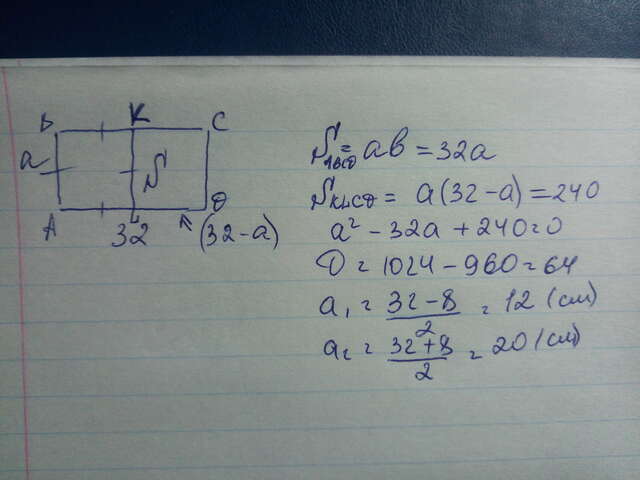 B K C
a S
A L D
32 (32-a)
S ABCD = ab = 32a
S KLCD = a(32-a) = 240
a² - 32a + 240 = 0
D = 1024 - 960 = 64
a₁ = 32-8/2 = 12 (см)
a₂ = 32+8/2 = 20 (см)